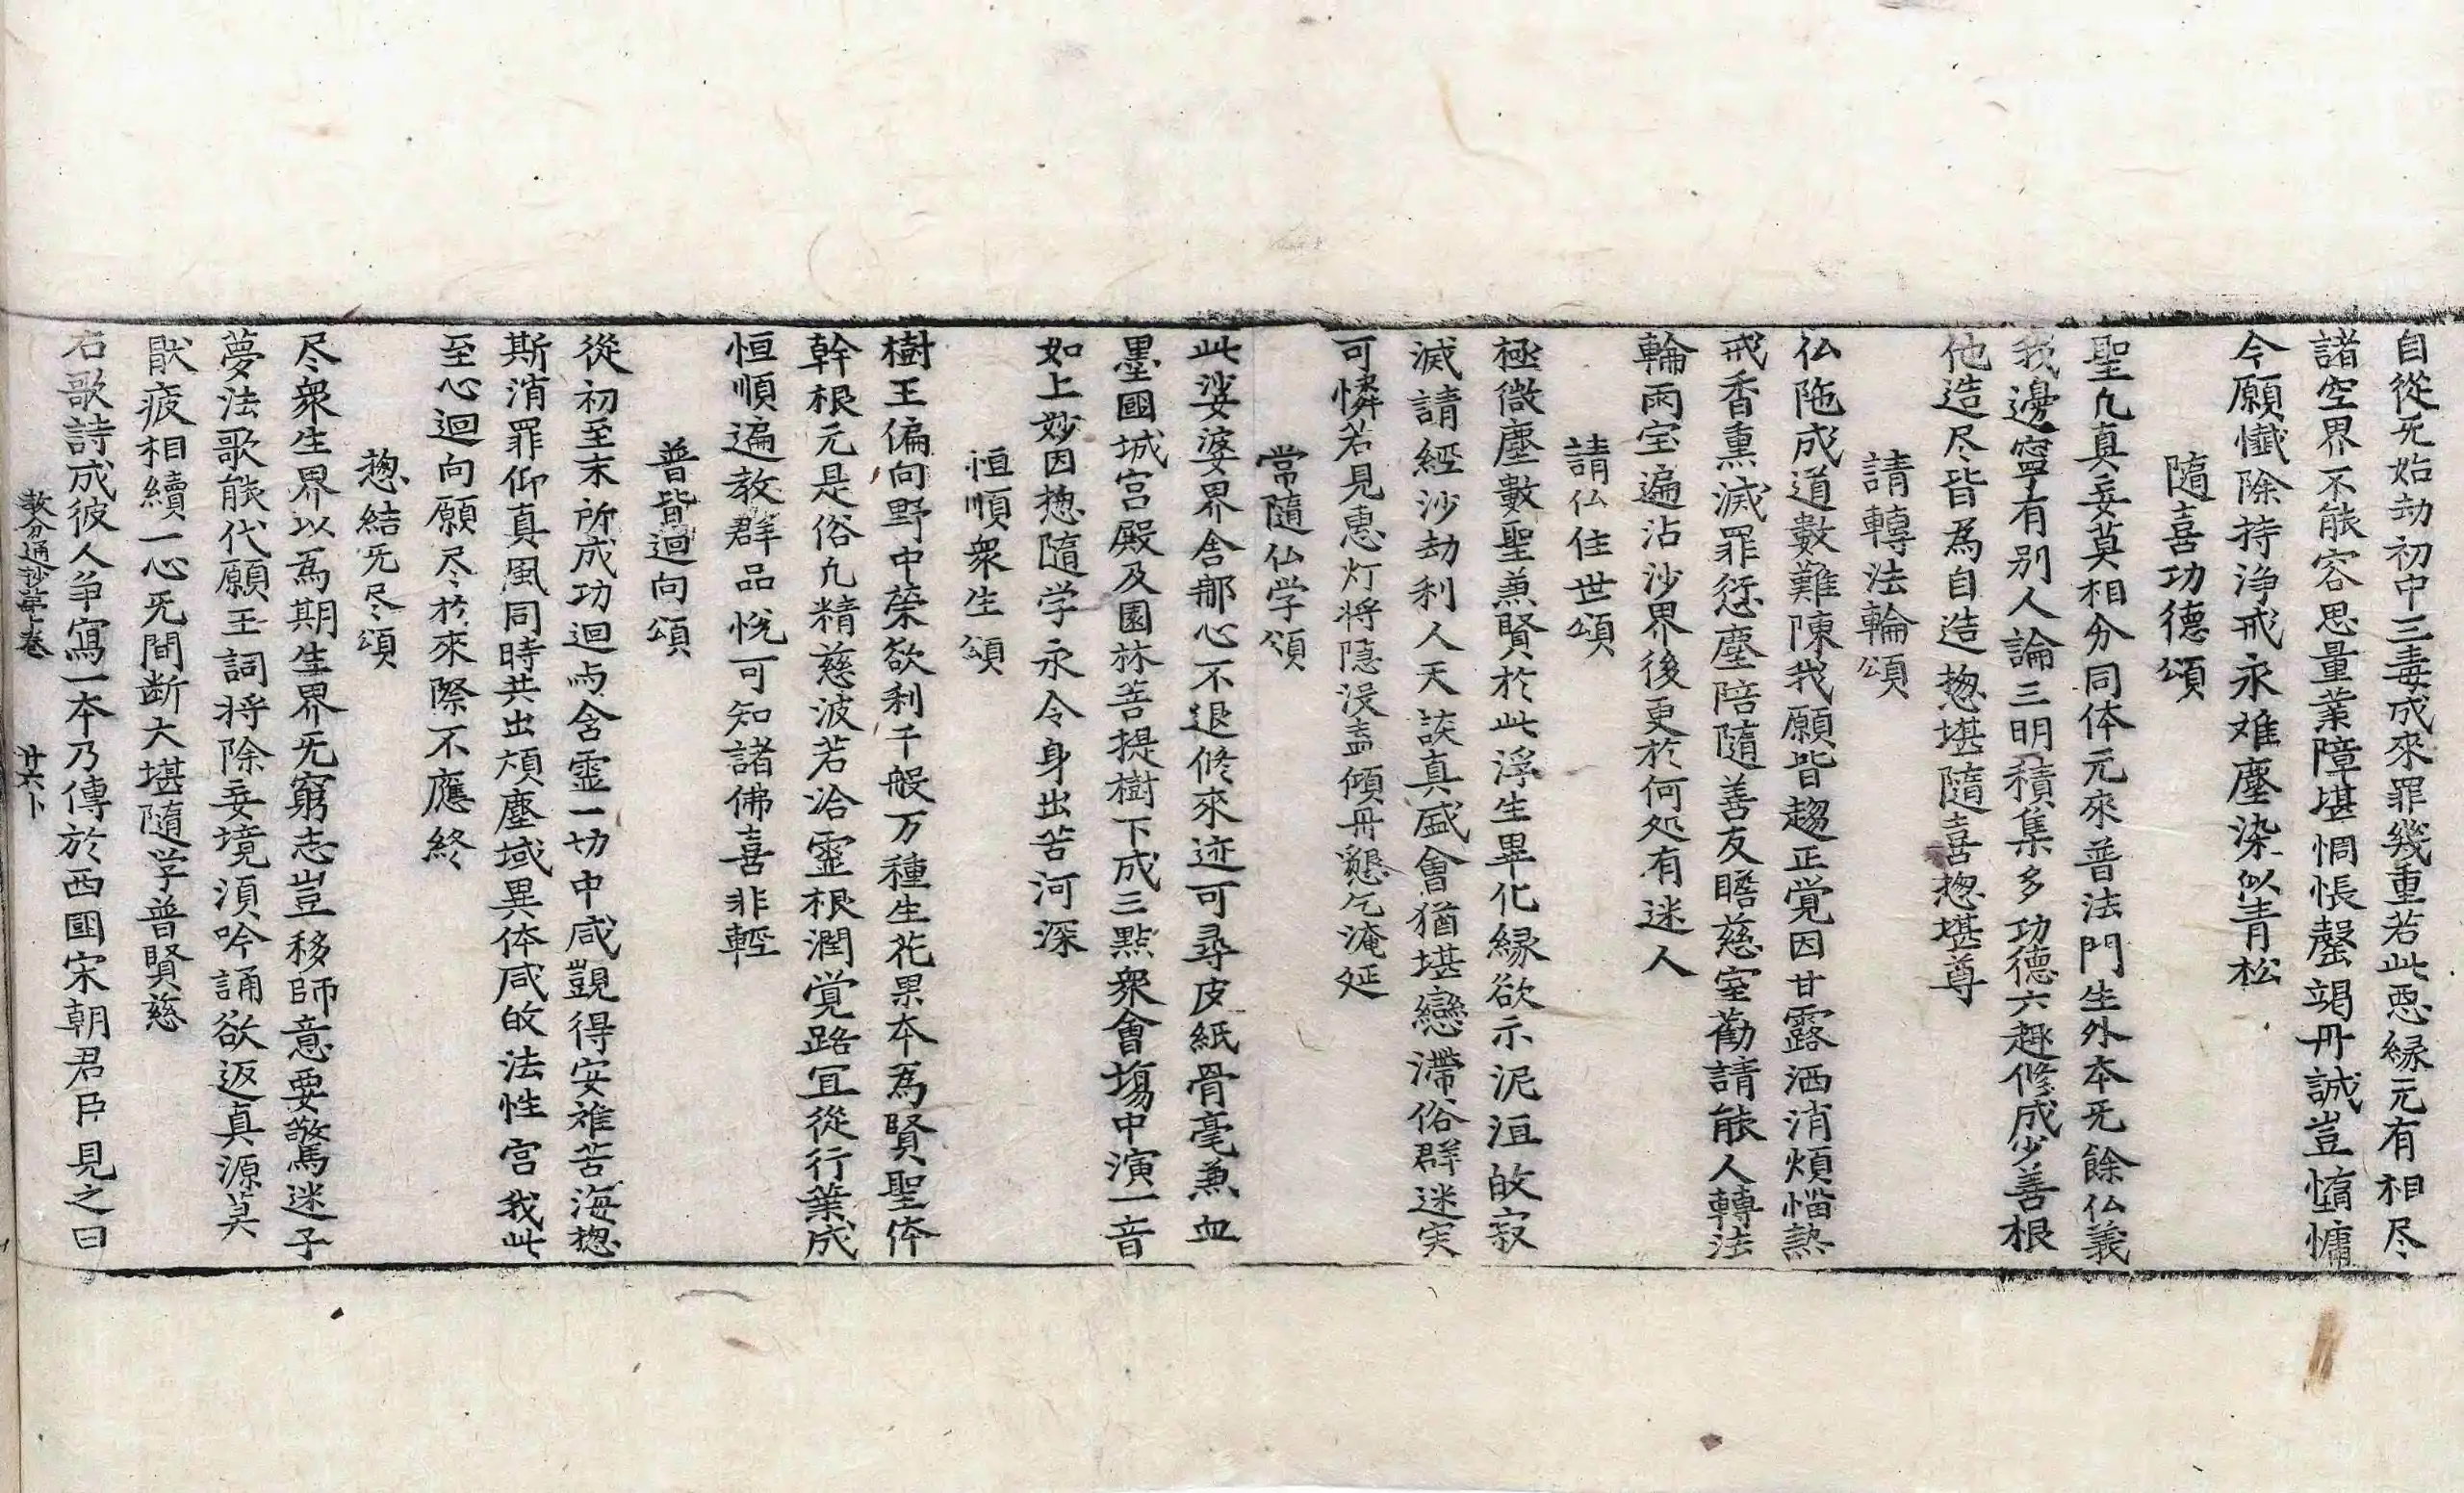 自從旡始劫初中三毒成來罪幾重若此惡縁元有相尽
諸空界不能容思量業障堪惆悵罄竭丹誠豈惰慵
今願懺除持浄戒永难塵染似青松
隨喜功德頌
聖凢真妄莫相分同体元來普法門生外本旡餘仏義
我邊寧有别人論三明積集多功德六趣修成少善根
他造尽皆爲自造揔堪隨喜揔堪尊
請轉法輪頌
仏陁成道數難陳我願皆趨正覚因甘露洒消煩惱熱
戒香熏滅罪愆塵陪隨善友瞻慈室勸請能人轉法
輪雨宝遍沾沙界後更於何処有迷人
請仏住世頌
極微塵數聖兼賢於此浮生畢化縁欲示泥洹㱕寂
滅請經沙劫利人天談真盛會猶堪戀滯俗群迷実
可憐若見惠灯将隠没盍傾丹懇乞淹延
常隨仏学頌
此娑婆界舍那心不退修來迹可尋皮紙骨毫兼血
墨國城宮殿及園林菩提樹下成三點衆會場中演一音
如上妙因揔隨学永令身出苦河深
恒順衆生頌
樹王偏向野中榮欲利千般万種生花果本爲賢聖体
幹根元是俗凢精慈波若洽靈根潤覚路冝從行業成
恒順遍教群品悅可知諸佛喜非輕
普皆迴向頌
從初至末所成功迴与含霊一切中咸覬得安離苦海揔
斯消罪仰真風同時共出煩塵域異体咸㱕法性宮我此
至心迴向願尽於來際不應終
揔結旡尽頌
尽衆生界以爲期生界旡窮志豈移師意要驚迷子
夢法歌能代願王詞将除妄境須吟誦欲返真源莫
猒疲相續一心旡間断大堪隨学普賢慈
右歌詩成彼人争寫一本乃傳於西國宋朝君臣見之曰
教分通抄苐上卷 廿六卜